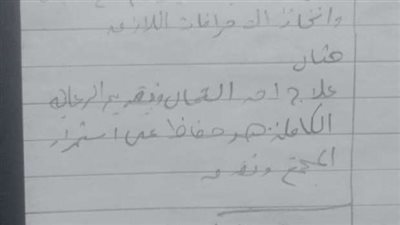 واتخاذ الاجراءات اللازمه
هناك
علاج احد وتقديم الرعايه
الكاملة هو حفاظا على استمرار
المجتمع وتقدمه